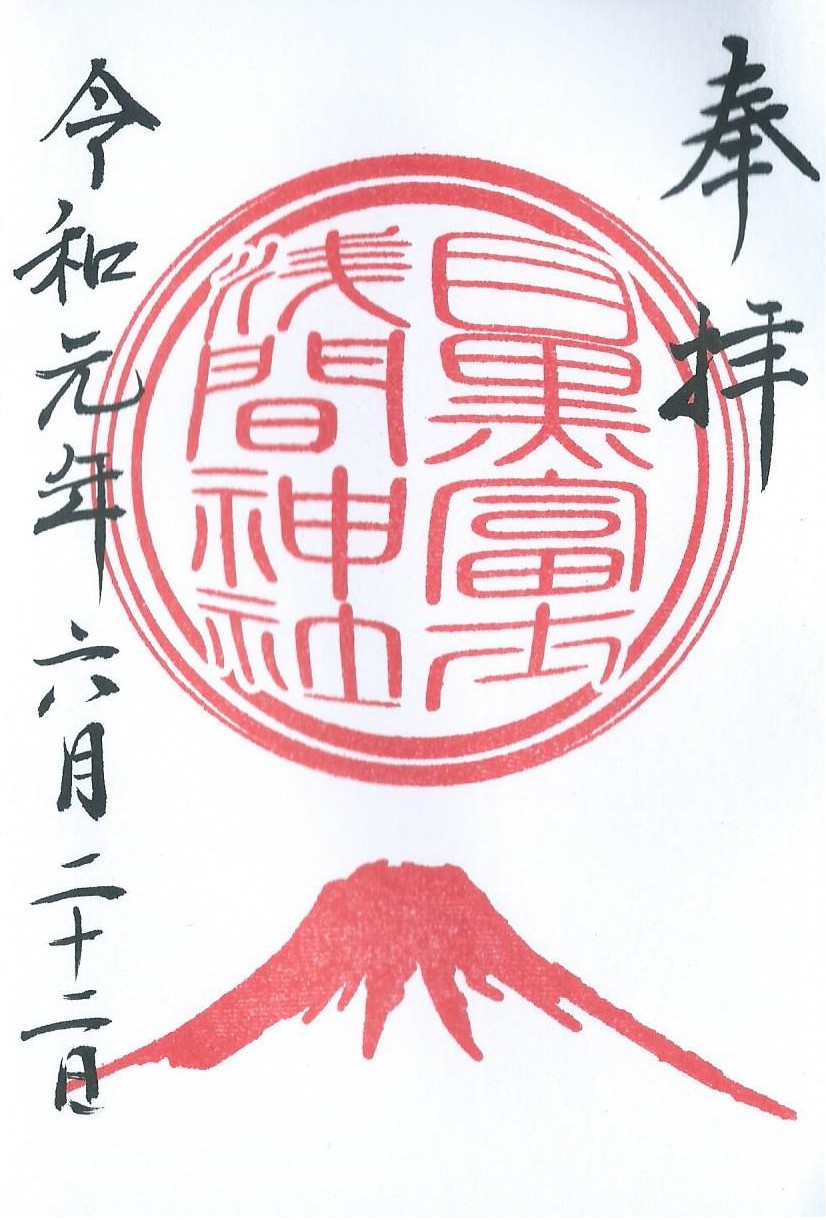 奉拝
目黒富士
浅間神社
令和元年六月二十二日